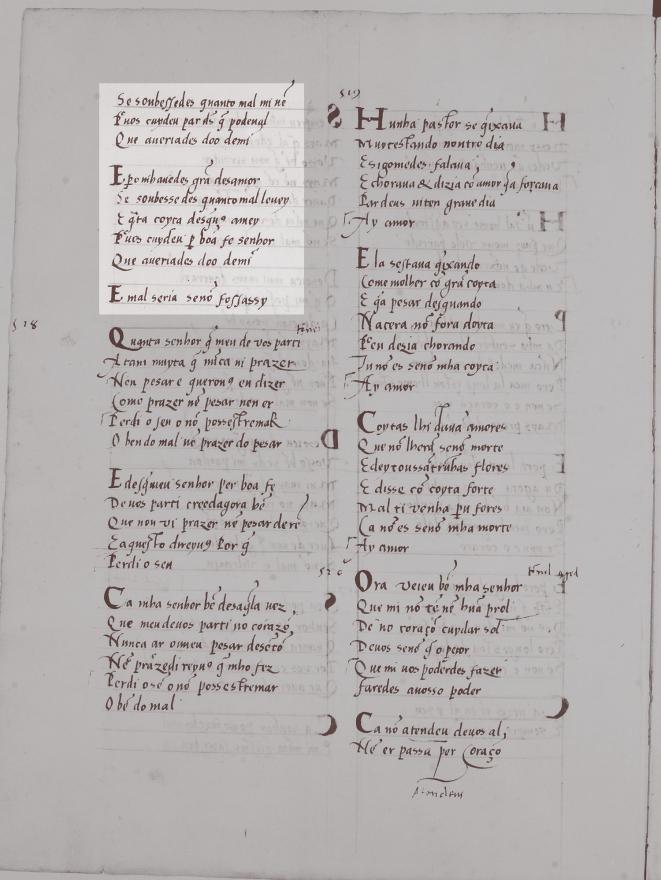 Se soubessedes quanto mal mi uẽ
E uos cuydeu par ds q̃ podenyl
Que aueriades doo demi
E pero mhauedes grã desamor
Se soubessedes quanto mal leuey
E quãta coyta desquos amey
E uos cuydeu p boa fe senhor
Que aueriades doo demi
E mal seria senõ fossassy
518
Quanta senhor q̃ meu de uos parti
Atam muyta q̃ nũca ni prazer
Nen pesar e querouos eu dizer
Como prazer nẽ pesar nen er
Perdi o seu o nõ posso estremar
O ben do mal nẽ prazer do pesar
E desqueu senhor per boa fe
De uos parti creedagora bẽ
Que non ui prazer nẽ pesar de rẽ
E aquesto direyuos por q̃
Perdi o seu
Ca mha senhor bẽ desaqla uez
Que meu deuos parti no coraçõ
Nunca ar ouueu pesar desentõ
Nẽ prazer direyuos q̃ mho fez
Perdi o sẽ o nõ posso estremar
O bẽ do mal
519
Hunha pastor se q̃ixaua
Muyt estando nontro dia
E sigo medes falaua
E choraua & dizia cõ amor q̃ a forçaua
Par deus uiten graue dia
Ay amor
Ela sestaua q̃ixando
Come molher cõ grã coyta
E q̃ a pesar desquando
Nacera nõ fora doyta
E en dezia chorando
Tu nõ es senõ mha coyta
Ay amor
Coytas lhi dauã amores
Que nõ lherã senõ morte
E deytoussantrunhas flores
E disse cõ coyta forte
Mal ti uenha per u fores
Ca nõ es senõ mha morte
Ay amor
520
Ora ueieu bẽ mha senhor
Que mi nõ tẽ nẽ hũa prol
De no coraçõ cuydar sol
De uos senõ q̃ o peor
Que mi uos poderdes fazer
Faredes a uosso poder
Ca nõ atendeu deuos al
Nẽ er passa per coraçõ